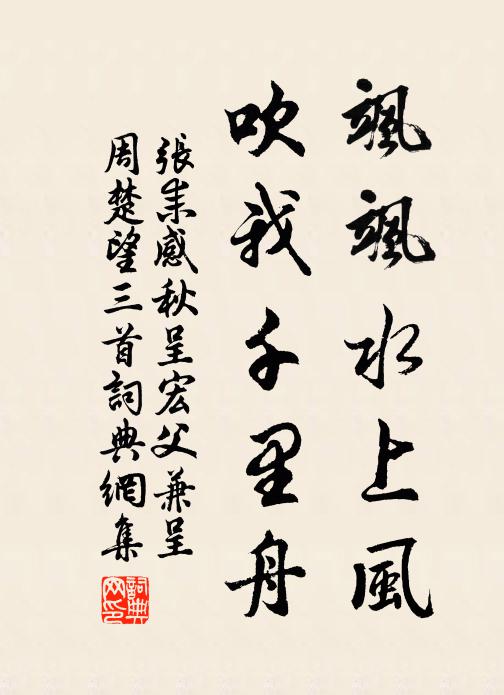 颯颯水上風
吹我千里舟
張耒感秋呈宏父兼呈
周楚望三首詞典網集
詞典網印